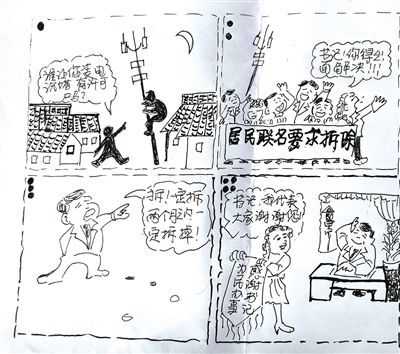 谁让你装电
讯塔 有许可
吗?
书记!你得出
面解决!!!
居民联名要求拆除
拆!一定拆
两个月内一
定拆掉!
书记 我代表
大家谢谢您
感谢书记
为民办事